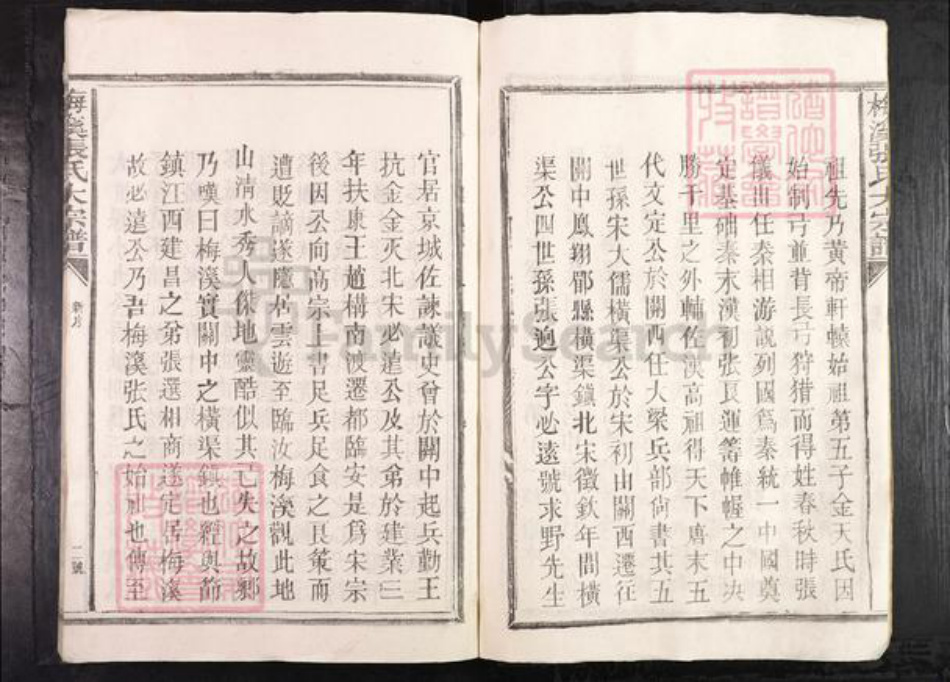 梅溪張氏大宗譜
祖先乃黃帝軒轅始祖第五子金天氏因
始制弓並背長弓狩猎而得姓春秋時張
儀出任秦相游說列國為秦統一中國奠
定基础秦末漢初張良運籌帷幄之中决
勝千里之外輔佐漢高祖得天下唐末五
代文定公於開西任大梁兵部尚書其五
世孫宋大儒横渠公於宋初由關西遷往
關中鳳翔郿縣横渠鎮北宋徽欽年間橫
渠公四世孫張逈公字必遠號求野先生
官居京城佐諫議史曾於關中起兵勤王
抗金金灭北宋必遠公及其弟於建業三
年扶康王趙構南渡遷都臨安是爲宋宗
後因公向高宗上書足兵足食之良策而
遭贬謫遂隱居雲遊至臨汝梅溪觀此地
山清水秀人傑地靈酷似其已失之故鄉
乃嘆曰梅溪實關中之横渠鎮也經與節
鎮江西建昌之弟張選相商遂定居梅溪
故必遠公乃吾梅溪张氏之始祖也傳至
梅溪張氏大宗譜
二號
FamilySearch